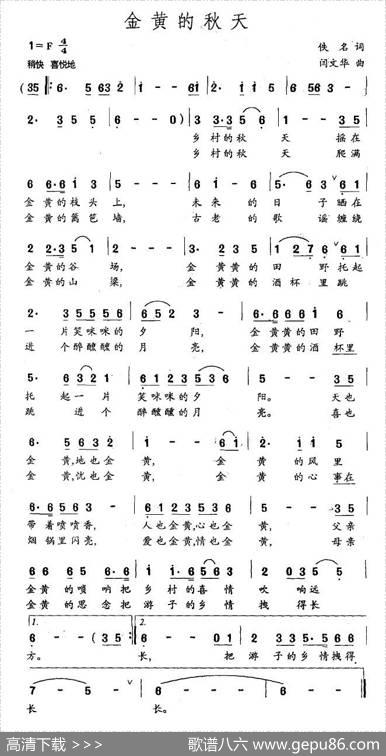 金黄的秋天
1=F 4/4
佚名 词
稍快 喜悦地
闫文华 曲
(35 6· 5 63 2 1 - - 61 2· 1 6 6 56 3 -
2· 35 5 6 - - 0) 3 3·35 6 1 - - 35
乡村的秋天 摇在
乡村的秋天 爬满
6 6·6 1 3 2 - - - 1· 6 1 6 5· 6 3 61
金黄的枝头上, 未来的日子晒在
金黄的篱笆墙, 古老的歌谣缠绕
2 2·35 1 2 - - - 3· 2 3 5 1 27 6 61
金黄的谷场, 金黄黄的田野托起
金黄的山梁, 金黄黄的酒杯里跳
2· 35553 6 52 3 - 6· 666 1 6
一片笑咪咪的夕阳, 金黄黄的田野
进个醉醺醺的月亮, 金黄黄的酒杯里
5· 6 321 6123 536 5 - - 35
托起一片笑咪咪的夕阳。 天也
跳进个醉醺醺的月亮。 喜也
6· 5 63 2 1 - - 61 2· 1 1 5
金黄,地也金黄, 金黄的风里
金黄,忧也金黄, 金黄的心事在
6· 6 56 3 6123 536 5 - 35
带着喷喷香, 人也金黄,心也金黄, 父亲
烟锅里闪亮, 爱也金黄,情也金黄, 母亲
66 65 5 6·6 1 1·6 56 3 2· 1 35
金黄的唢呐把乡村的喜情吹响远
金黄的思念把游子的乡情拽得长
1. 6 - - (35 2. 6 - - 01 2 35·3 6 2
方。 长, 把游子的乡情拽得
7 - 5 - 6 - - - 6 - - 0
长 长。
高清下载 >>>
歌谱八六 www.gepu86.com